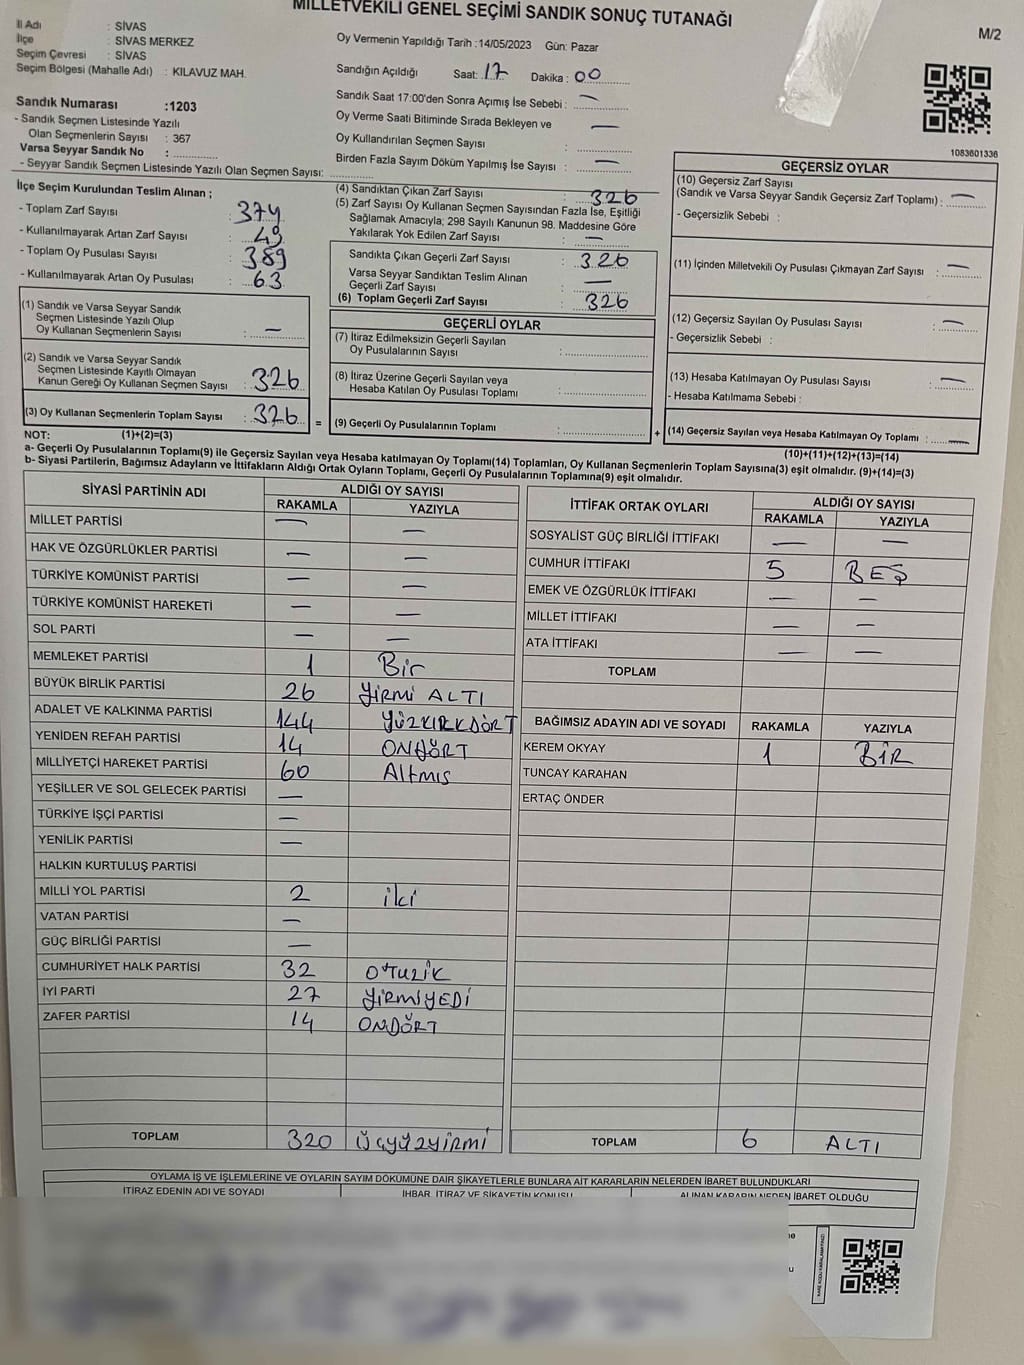 MİLLETVEKİLİ GENEL SEÇİMİ SANDIK SONUÇ TUTANAĞI
M/2
İl Adı : SİVAS
İlçe : SİVAS MERKEZ
Seçim Çevresi : SİVAS
Seçim Bölgesi (Mahalle Adı) : KILAVUZ MAH.
Sandık Numarası :1203
- Sandık Seçmen Listesinde Yazılı
Olan Seçmenlerin Sayısı : 367
Varsa Seyyar Sandık No :
- Seyyar Sandık Seçmen Listesinde Yazılı Olan Seçmen Sayısı:
Oy Vermenin Yapıldığı Tarih :14/05/2023 Gün: Pazar
Sandığın Açıldığı Saat: 17 Dakika : 00
Sandık Saat 17:00'den Sonra Açımış İse Sebebi : —
Oy Verme Saati Bitiminde Sırada Bekleyen ve
Oy Kullandırılan Seçmen Sayısı : —
Birden Fazla Sayım Döküm Yapılmış İse Sayısı : —
1083601336
İlçe Seçim Kurulundan Teslim Alınan ;
- Toplam Zarf Sayısı : 374
- Kullanılmayarak Artan Zarf Sayısı : 49
- Toplam Oy Pusulası Sayısı : 389
- Kullanılmayarak Artan Oy Pusulası : 63
(1) Sandık ve Varsa Seyyar Sandık
Seçmen Listesinde Yazılı Olup
Oy Kullanan Seçmenlerin Sayısı : —
(2) Sandık ve Varsa Seyyar Sandık
Seçmen Listesinde Kayıtlı Olmayan
Kanun Gereği Oy Kullanan Seçmen Sayısı : 326
(3) Oy Kullanan Seçmenlerin Toplam Sayısı : 326
(4) Sandıktan Çıkan Zarf Sayısı : 326
(5) Zarf Sayısı Oy Kullanan Seçmen Sayısından Fazla İse, Eşitliği
Sağlamak Amacıyla; 298 Sayılı Kanunun 98. Maddesine Göre
Yakılarak Yok Edilen Zarf Sayısı : —
Sandıkta Çıkan Geçerli Zarf Sayısı : 326
Varsa Seyyar Sandıktan Teslim Alınan
Geçerli Zarf Sayısı : —
(6) Toplam Geçerli Zarf Sayısı : 326
GEÇERLİ OYLAR
(7) İtiraz Edilmeksizin Geçerli Sayılan
Oy Pusulalarının Sayısı :
(8) İtiraz Üzerine Geçerli Sayılan veya
Hesaba Katılan Oy Pusulası Toplamı :
= (9) Geçerli Oy Pusulalarının Toplamı : +
GEÇERSİZ OYLAR
(10) Geçersiz Zarf Sayısı
(Sandık ve Varsa Seyyar Sandık Geçersiz Zarf Toplamı) : —
- Geçersizlik Sebebi :
(11) İçinden Milletvekili Oy Pusulası Çıkmayan Zarf Sayısı : —
(12) Geçersiz Sayılan Oy Pusulası Sayısı : —
- Geçersizlik Sebebi :
(13) Hesaba Katılmayan Oy Pusulası Sayısı : —
- Hesaba Katılmama Sebebi :
(14) Geçersiz Sayılan veya Hesaba Katılmayan Oy Toplamı : —
NOT: (1)+(2)=(3) (10)+(11)+(12)+(13)=(14)
a- Geçerli Oy Pusulalarının Toplamı(9) ile Geçersiz Sayılan veya Hesaba Katılmayan Oy Toplamı(14) Toplamları, Oy Kullanan Seçmenlerin Toplam Sayısına(3) eşit olmalıdır. (9)+(14)=(3)
b- Siyasi Partilerin, Bağımsız Adayların ve İttifakların Aldığı Ortak Oyların Toplamı, Geçerli Oy Pusulalarının Toplamına(9) eşit olmalıdır.
SİYASİ PARTİNİN ADI ALDIĞI OY SAYISI
RAKAMLA YAZIYLA
MİLLET PARTİSİ — —
HAK VE ÖZGÜRLÜKLER PARTİSİ — —
TÜRKİYE KOMÜNİST PARTİSİ — —
TÜRKİYE KOMÜNİST HAREKETİ — —
SOL PARTİ — —
MEMLEKET PARTİSİ 1 Bir
BÜYÜK BİRLİK PARTİSİ 26 YİRMİ ALTI
ADALET VE KALKINMA PARTİSİ 144 YÜZKIRKDÖRT
YENİDEN REFAH PARTİSİ 14 ONDÖRT
MİLLİYETÇİ HAREKET PARTİSİ 60 Altmış
YEŞİLLER VE SOL GELECEK PARTİSİ —
TÜRKİYE İŞÇİ PARTİSİ —
YENİLİK PARTİSİ —
HALKIN KURTULUŞ PARTİSİ
MİLLİ YOL PARTİSİ 2 iki
VATAN PARTİSİ —
GÜÇ BİRLİĞİ PARTİSİ —
CUMHURİYET HALK PARTİSİ 32 OTUZİK
İYİ PARTİ 27 YİRMİYEDİ
ZAFER PARTİSİ 14 ONDÖRT
TOPLAM 320 Üçyüzyirmi
İTTİFAK ORTAK OYLARI ALDIĞI OY SAYISI
RAKAMLA YAZIYLA
SOSYALİST GÜÇ BİRLİĞİ İTTİFAKI — —
CUMHUR İTTİFAKI 5 BEŞ
EMEK VE ÖZGÜRLÜK İTTİFAKI — —
MİLLET İTTİFAKI — —
ATA İTTİFAKI — —
TOPLAM
BAĞIMSIZ ADAYIN ADI VE SOYADI RAKAMLA YAZIYLA
KEREM OKYAY 1 BİR
TUNCAY KARAHAN
ERTAÇ ÖNDER
TOPLAM 6 ALTI
OYLAMA İŞ VE İŞLEMLERİNE VE OYLARIN SAYIM DÖKÜMÜNE DAİR ŞİKAYETLERLE BUNLARA AİT KARARLARIN NELERDEN İBARET BULUNDUKLARI
İTİRAZ EDENİN ADI VE SOYADI İHBAR, İTİRAZ VE ŞİKAYETİN KONUSU ALINAN KARARIN NEDEN İBARET OLDUĞU